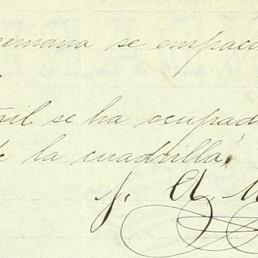 semana se empacó
il se ha ocupad
de la cuadrilla.
J. A.